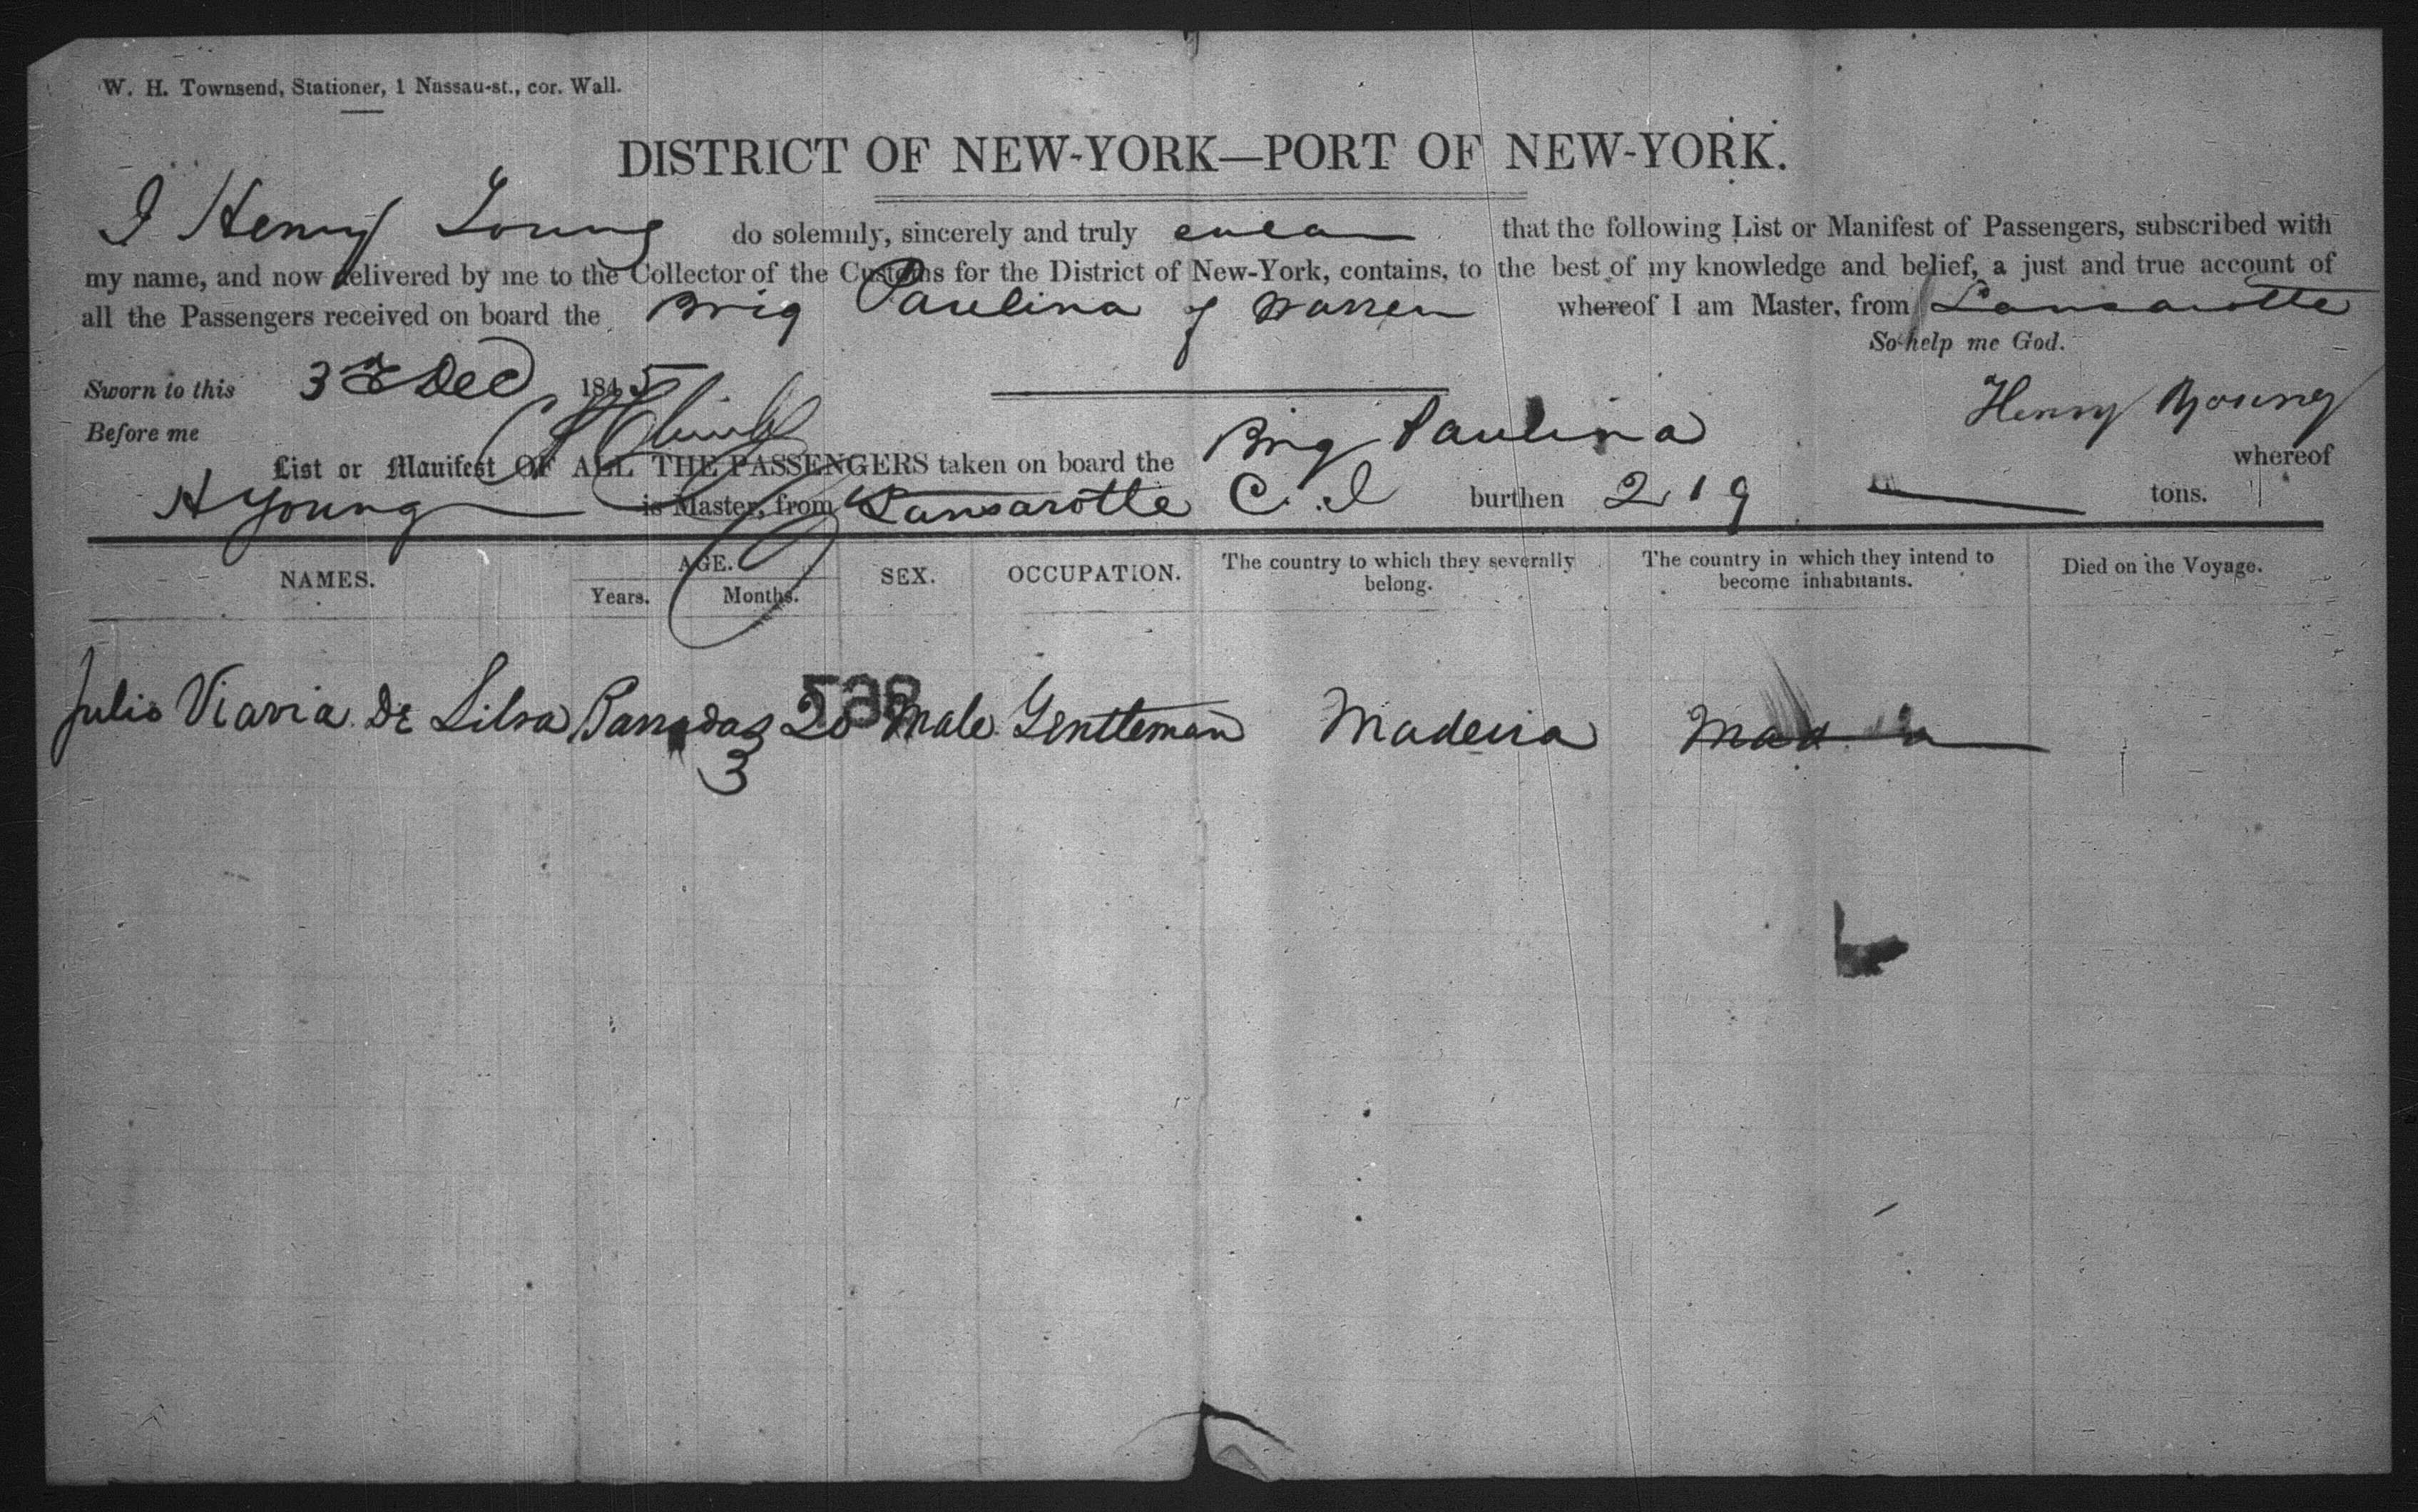 W. H. Townsend, Stationer, 1 Nassau-st., cor. Wall.
DISTRICT OF NEW-YORK—PORT OF NEW-YORK.
I Henry Young do solemnly, sincerely and truly swear that the following List or Manifest of Passengers, subscribed with
my name, and now delivered by me to the Collector of the Customs for the District of New-York, contains, to the best of my knowledge and belief, a just and true account of
all the Passengers received on board the Brig Paulina of Warren whereof I am Master, from Lansarotte
So help me God.
Sworn to this 3d Dec 1845
Henry Young
Before me
List or Manifest OF ALL THE PASSENGERS taken on board the Brig Paulina whereof
H Young is Master, from Lansarotte C. I burthen 219 tons.
NAMES. AGE. Years. Months. SEX. OCCUPATION. The country to which they severally belong. The country in which they intend to become inhabitants. Died on the Voyage.
Julio Viavia De Silva Barradas 20 Male Gentleman Madeira
3
538